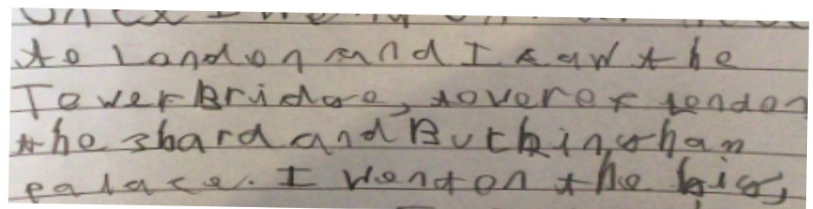 to London and I saw the
Tower Bridge, tower of london
the shard and Buckingham
palace. I went on the big